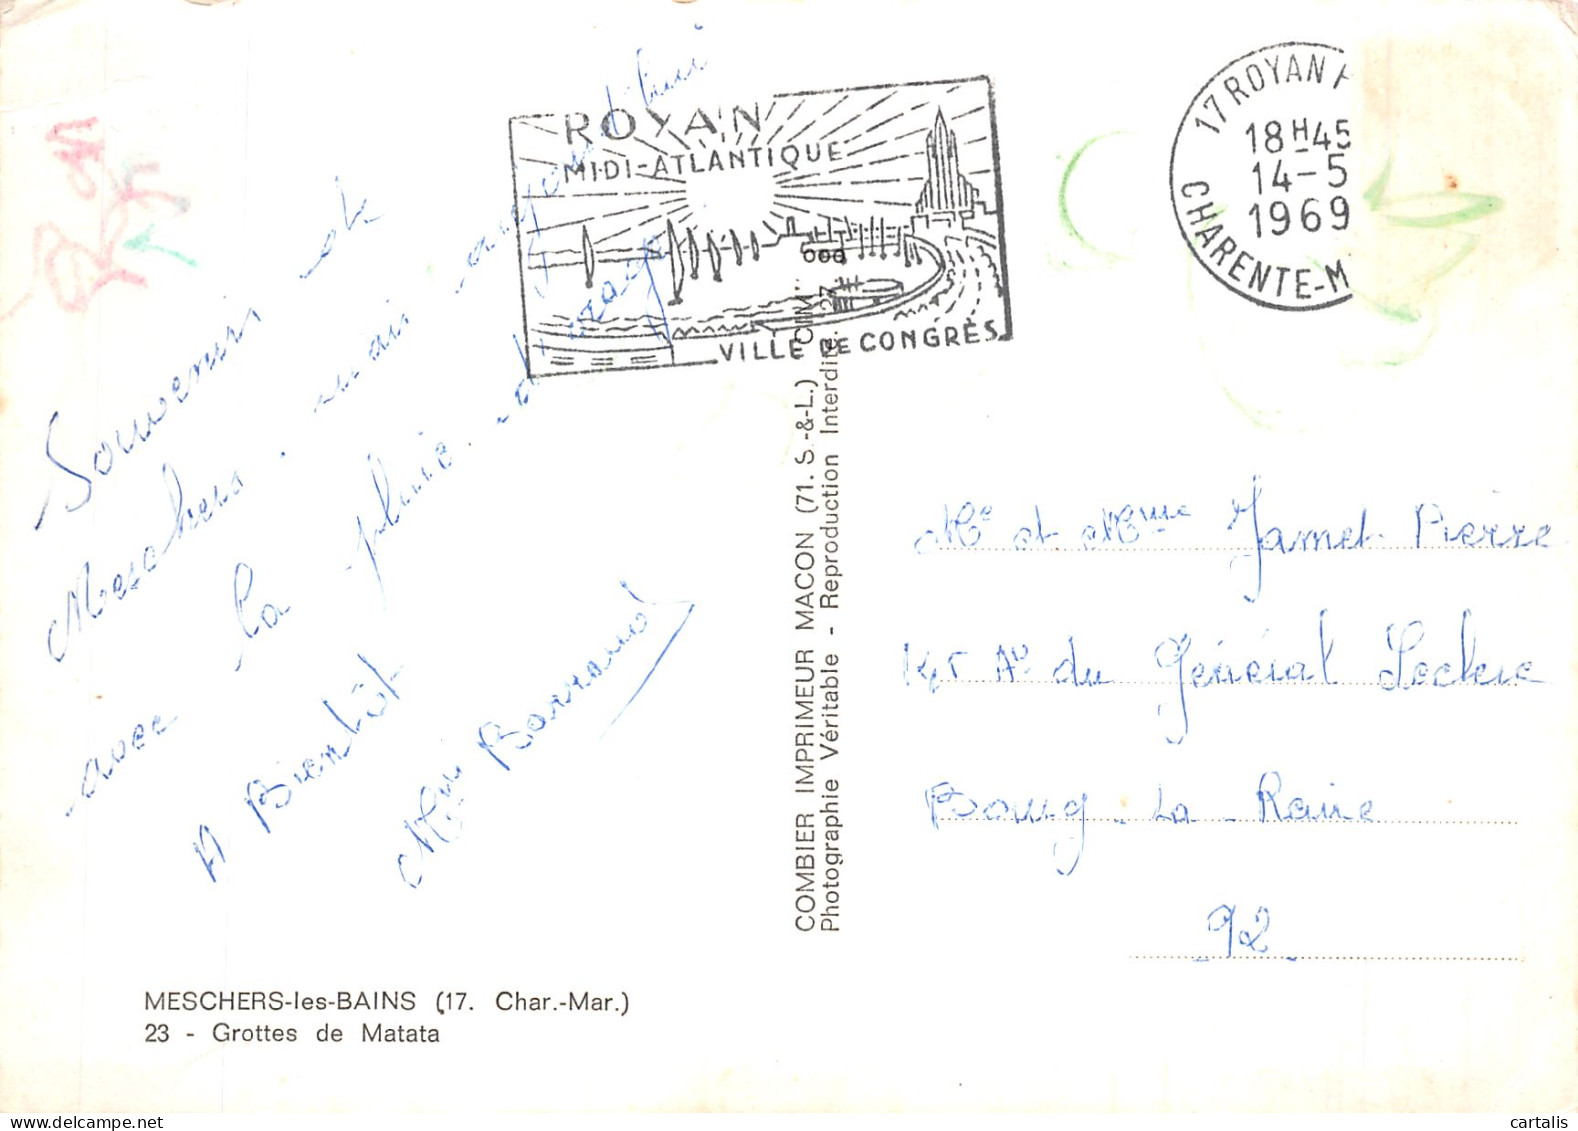 Souvenir de
Meschers. mais aujourd'hui
avec la pluie. d'orage
A Bientôt
Mme Barraud
ROYAN
MIDI-ATLANTIQUE
VILLE DE CONGRÈS
17 ROYAN
18H45
14-5
1969
CHARENTE-M
COMBIER IMPRIMEUR MACON (71. S.-&-L.) "CIM"
Photographie Véritable - Reproduction Interdite
Mr et Mme Jamet Pierre
145 Av du Général Leclerc
Bourg-La-Reine
92
MESCHERS-les-BAINS (17. Char.-Mar.)
23 - Grottes de Matata
cartalis